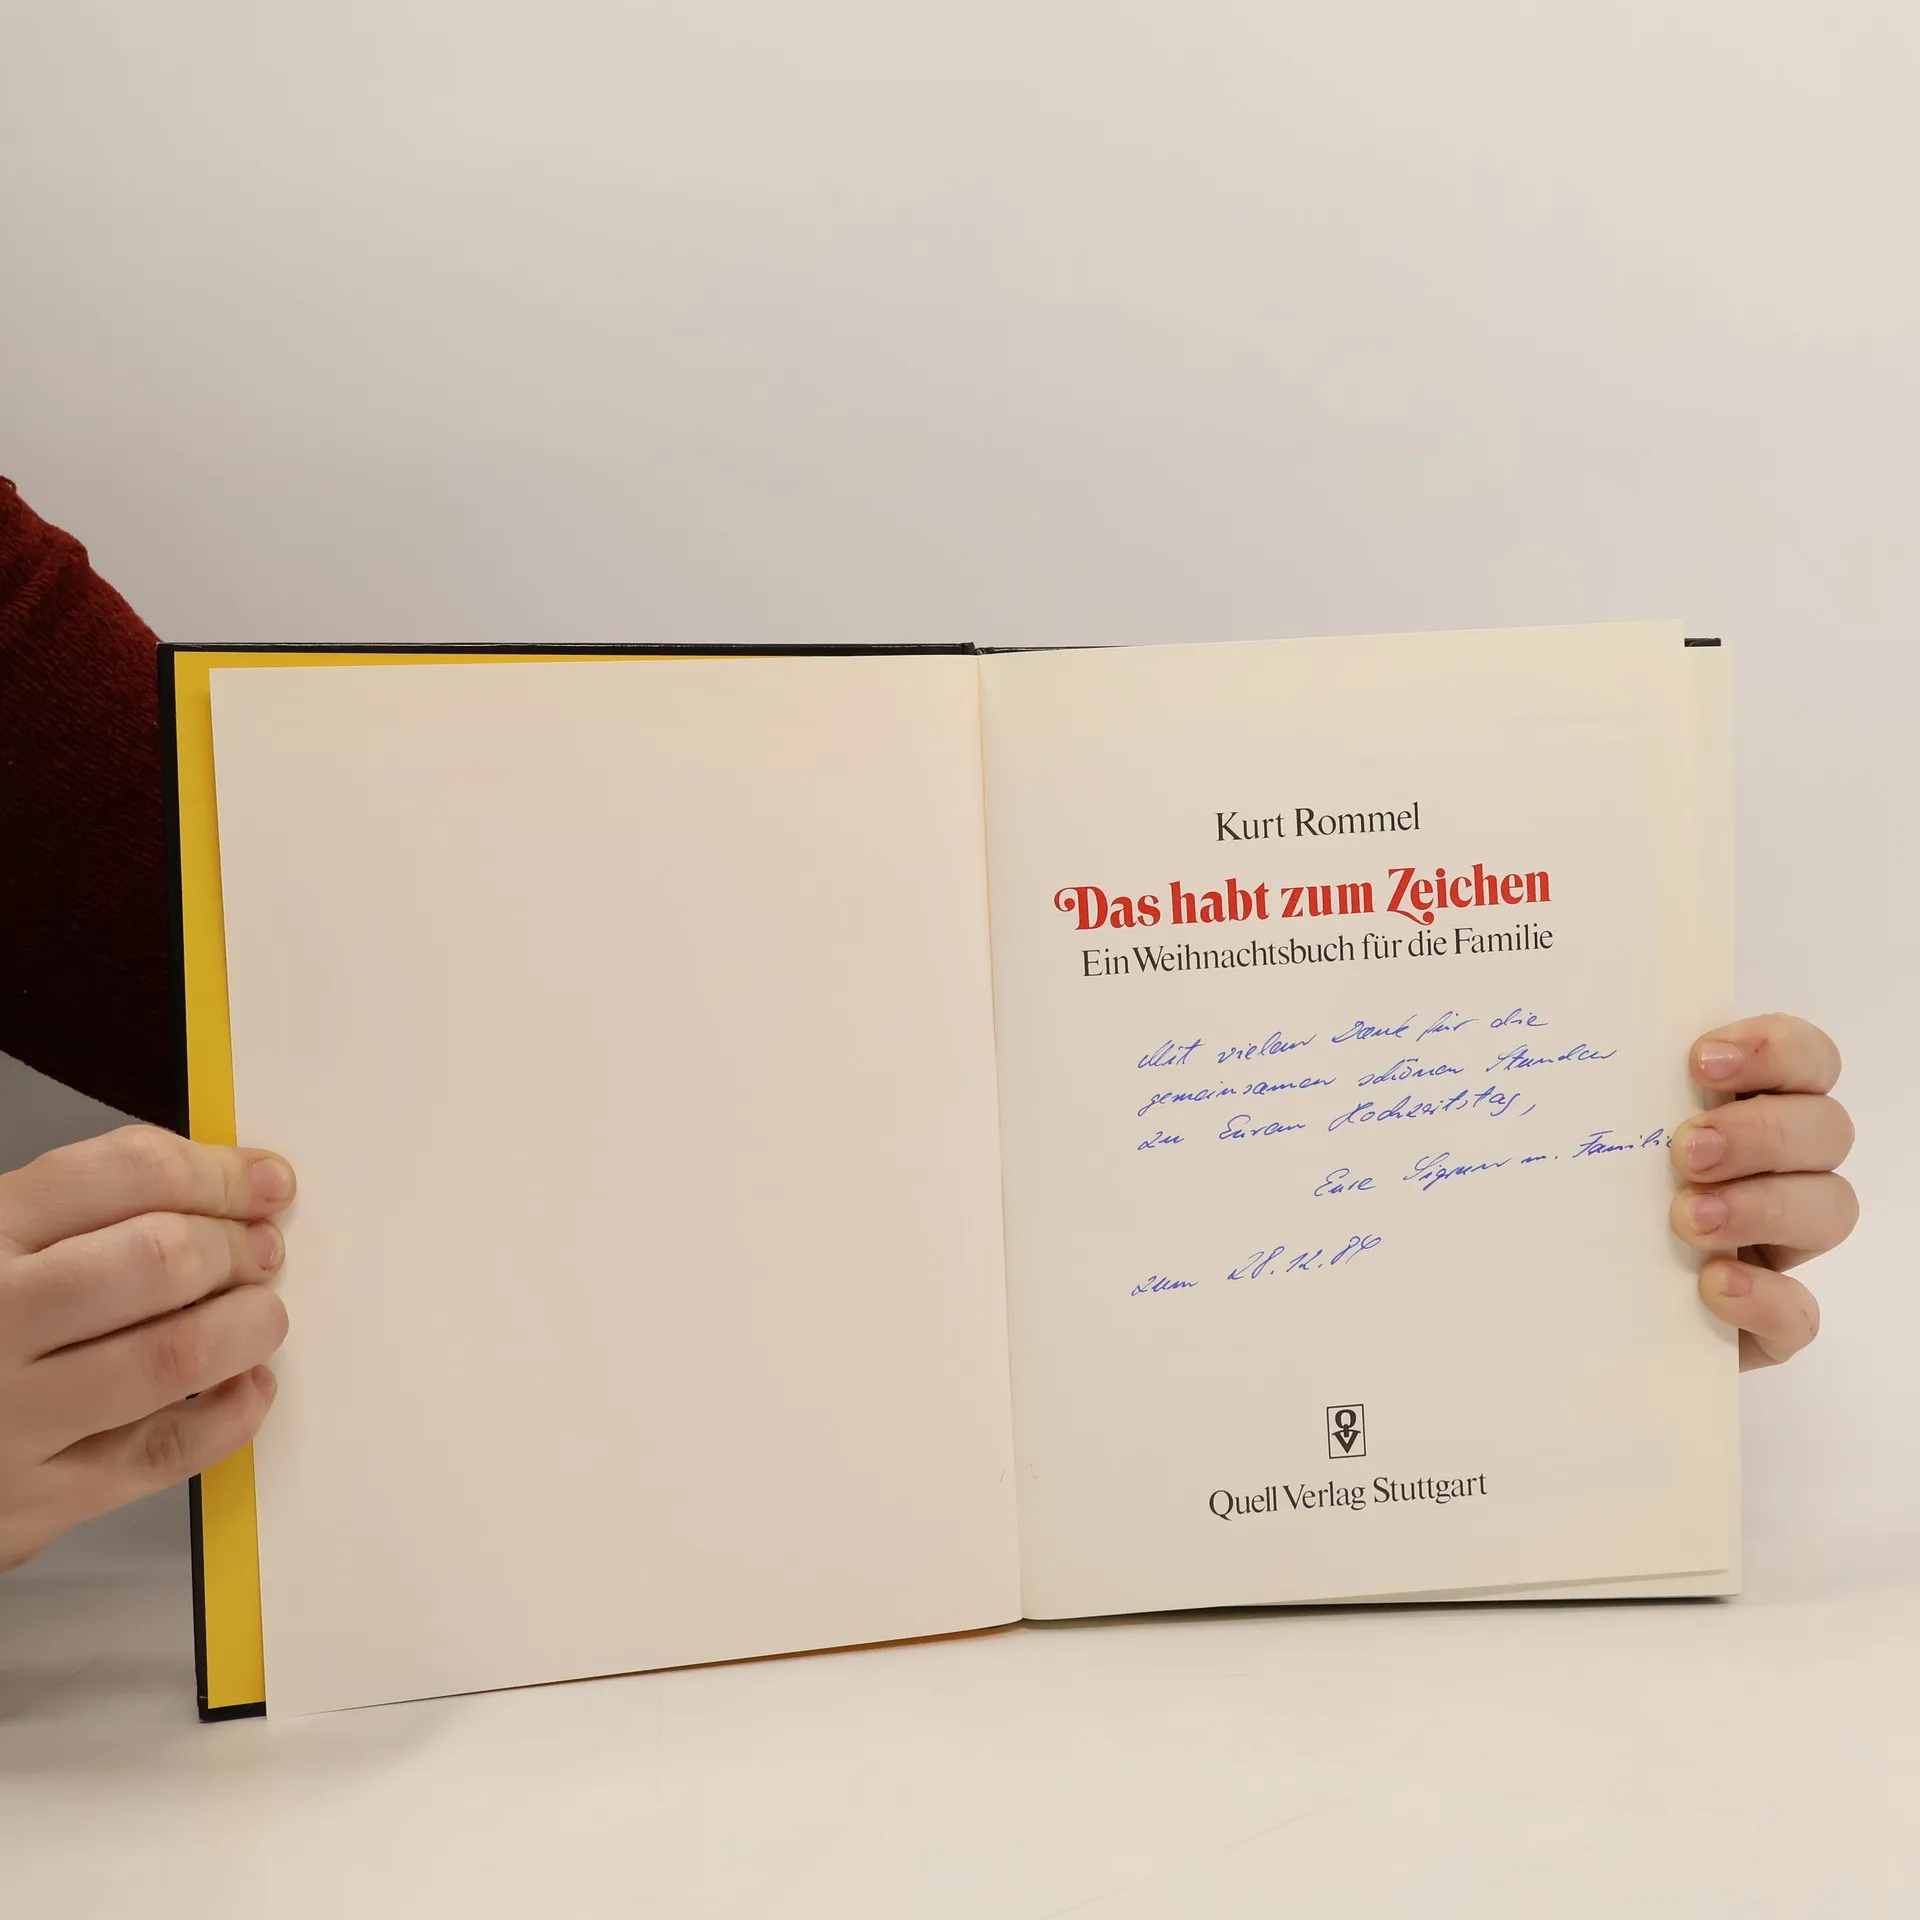 Kurt Rommel
Das habt zum Zeichen
Ein Weihnachtsbuch für die Familie
Mit vielem Dank für die
gemeinsamen schönen Stunden
zu Eurem Hochzeitstag,
Eure Sigrun m. Familie
zum 28.12.84
QV
Quell Verlag Stuttgart